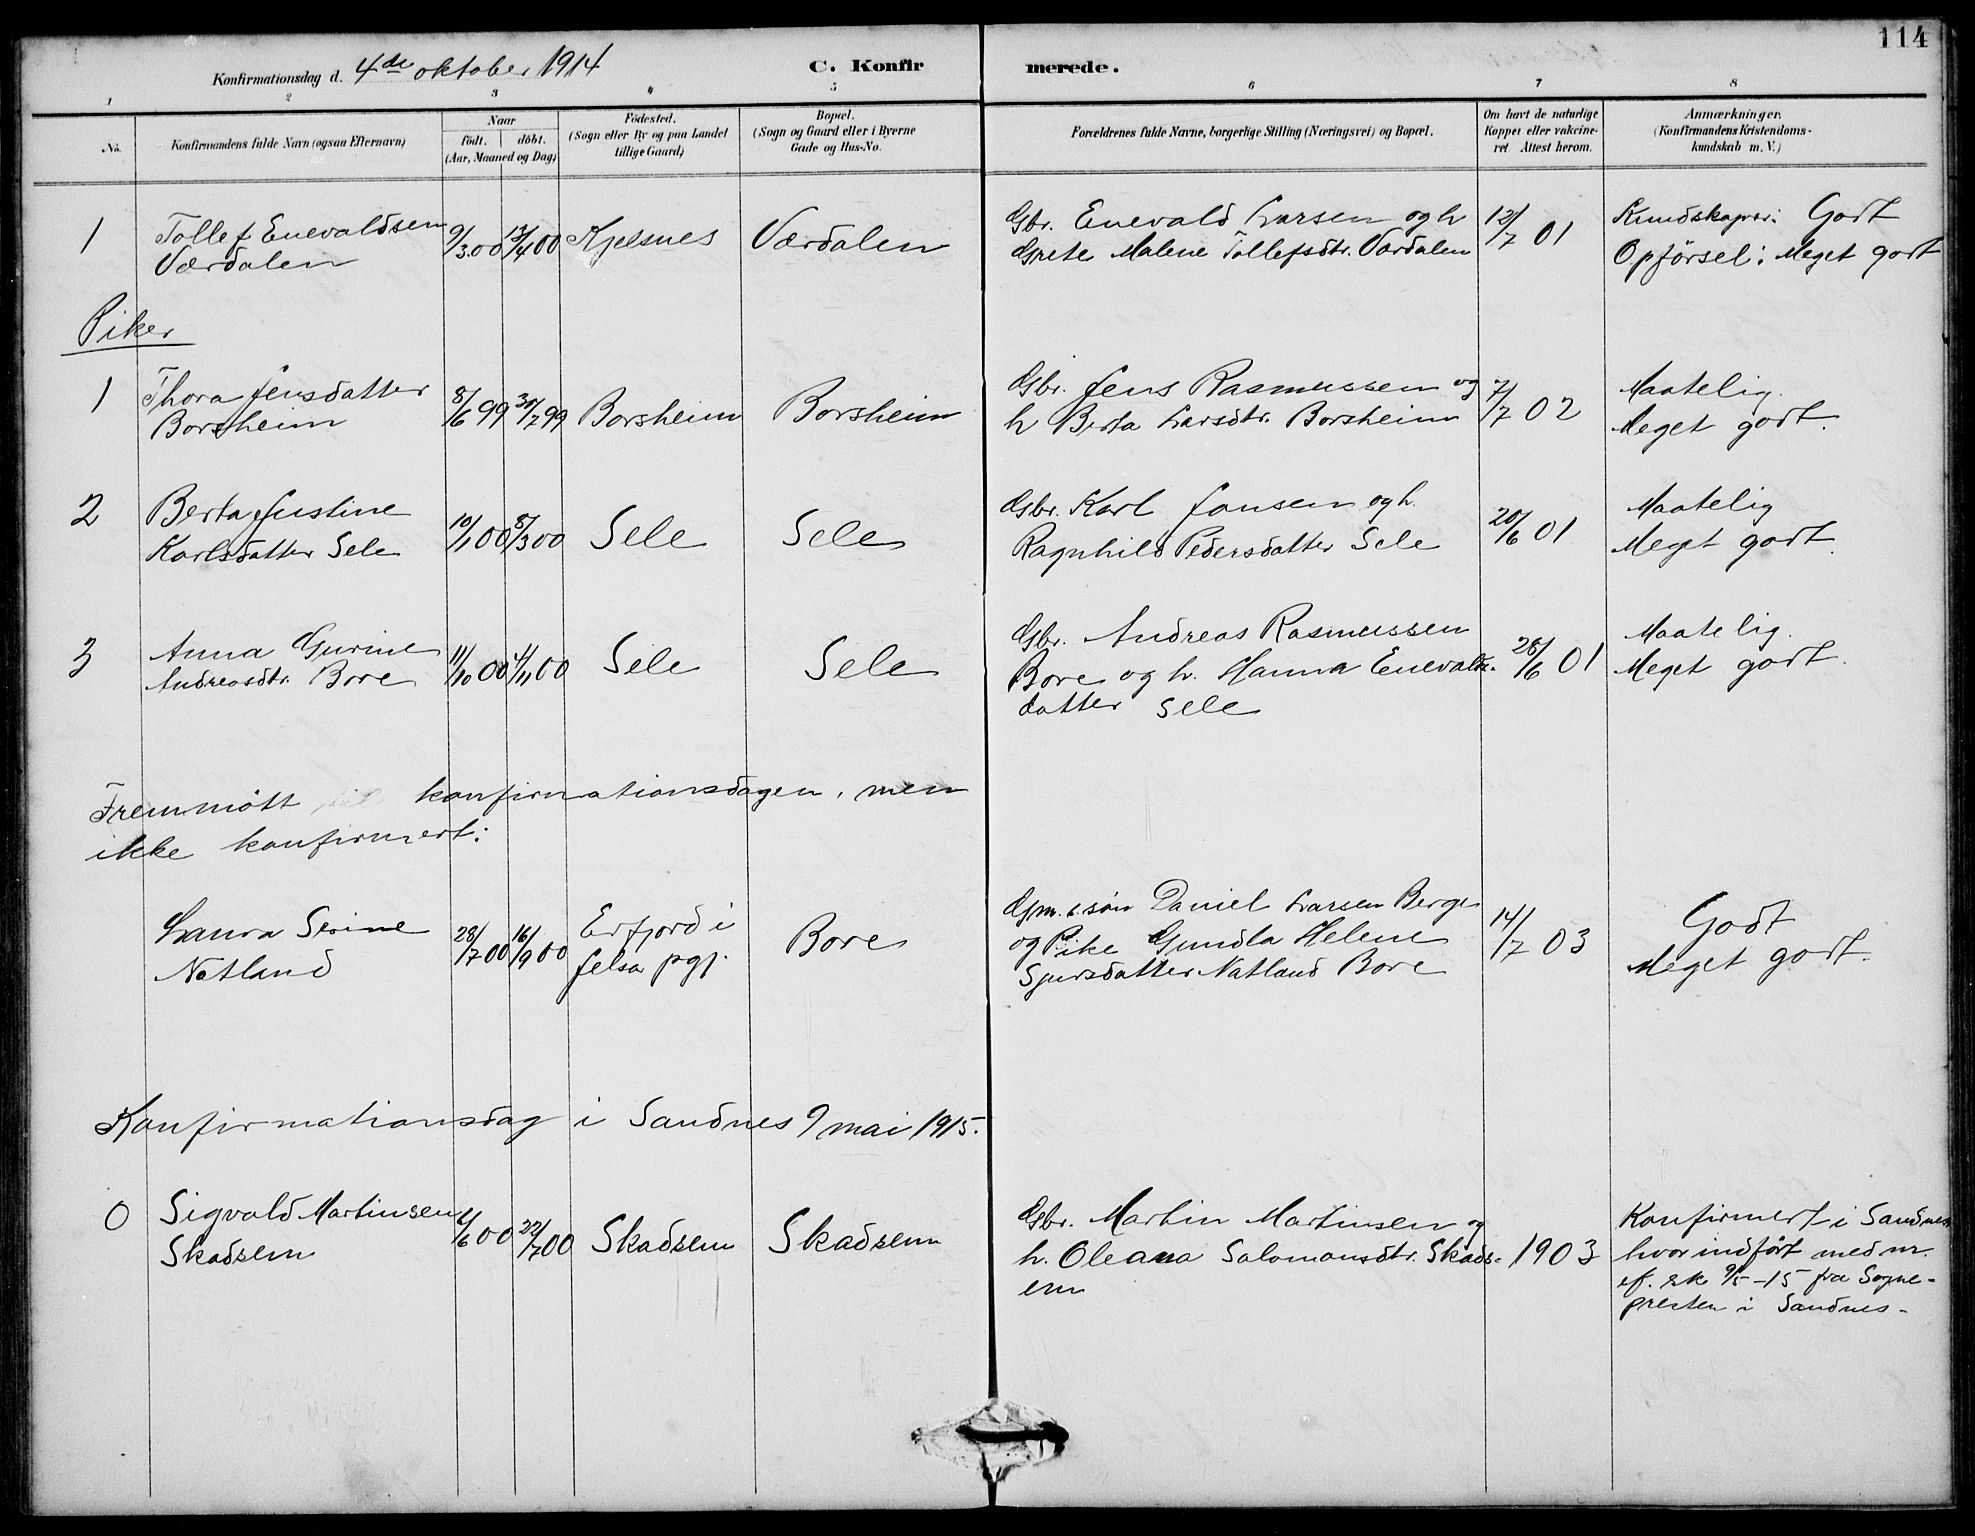 114
Konfirmationsdag d. 4de oktober 1914
C. Konfirmerede.
1 2 3 4 5 6 7 8
No.
Konfirmandens fulde Navn (ogsaa Efternavn)
Naar
födt. döbt.
(Aar, Maaned og Dag)
Födested.
(Sogn eller By og paa Landet
tillige Gaard)
Bopæl.
(Sogn og Gaard eller i Byerne
Gade og Hus-No.
Forældrenes fulde Navne, borgerlige Stilling (Næringsvei) og Bopæl.
Om havt de naturlige
Kopper eller vakcine-
ret. Attest herom.
Anmærkninger.
(Konfirmandens Kristendoms-
kundskab m. V.)
1
Tollef Enevaldsen
Værdalen
9/3.00 13/4 00 Kjelsnes Værdalen
Gbr. Enevald Larsen og h
Grete Malene Tollefsdtr. Værdalen
12/7 01
Kundskaper: Godt
Opförsel: Meget godt
Piker
1
Thora Jensdatter
Borsheim
8/6 99 30/7 99 Borsheim Borsheim
Gbr. Jens Rasmussen og
h Berta Larsdtr. Borsheim
7/7 02
Maatelig.
Meget godt.
2
Berta Justine
Karlsdatter Sele
10/1 00 8/3 00 Sele Sele
Gbr. Karl Jonsen og h.
Ragnhild Pedersdatter Sele
20/6 01
Maatelig
Meget godt.
3
Anna Gurine
Andreasdtr. Bore
11/10 00 4/11 00 Sele Sele
Gbr. Andreas Rasmussen
Bore og h. Hanna Enevalds-
datter Sele
28/6 01
Maatelig.
Meget godt.
Fremmött konfirmationsdagen, men
ikke konfirmert:
Laura Serine
Natland
28/7 00 16/9 00
Erfjord i
Jelsa pgj.
Bore
Gm. s. sön Daniel Larsen Berge
og Pike Gundla Helene
Sjursdatter Natland Bore
14/7 03
Godt
Meget godt.
Konfirmationsdag i Sandnes 9 mai 1915.
0
Sigvald Martinsen
Skadsem
4/6 00 22/7 00 Skadsem Skadsem
Gbr. Martin Martinsen og
h. Oleana Salomonsdtr. Skads-
em
1903
Konfirmert i Sandnes
hvor indfört med nr.
ef. sk 9/5-15 fra Sogne-
presten i Sandnes-